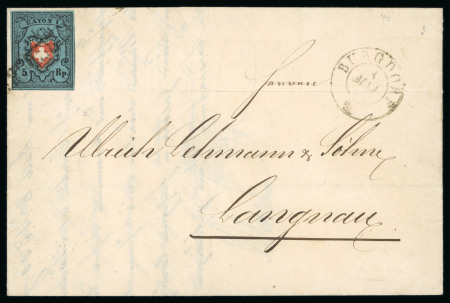 RAYON I
5 Rp.
BURGDORF
Herren
Ulrich Lehmann & Söhne
Langnau